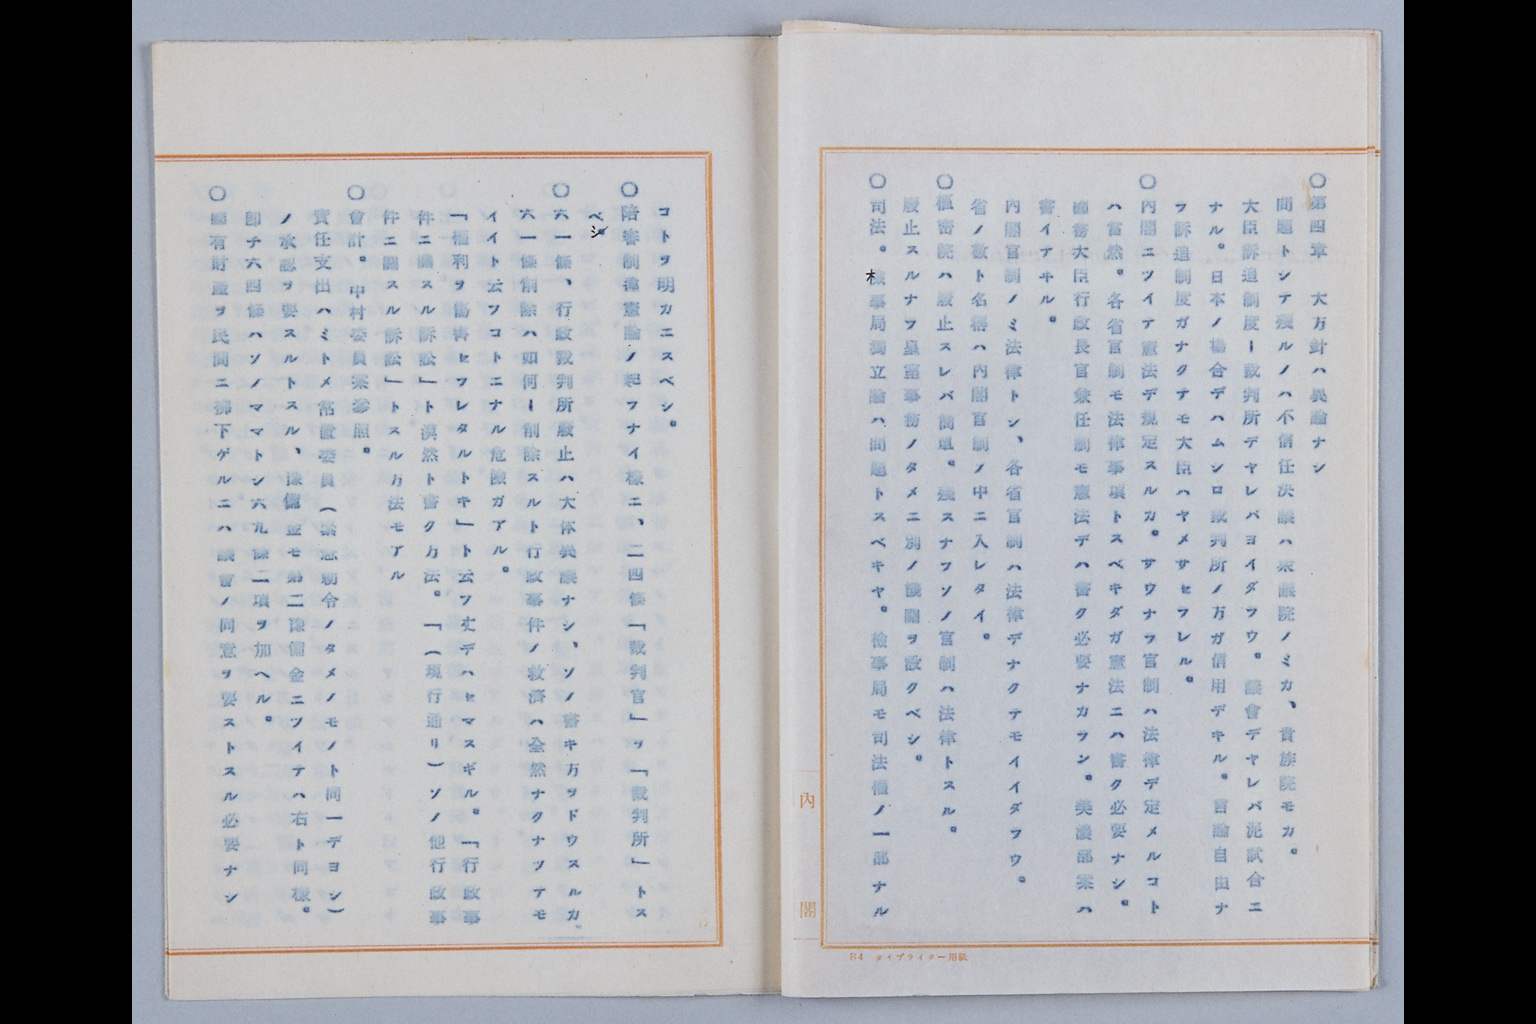 〇第四章　大方針ハ異論ナシ
問題トシテ残ルノハ不信任決議ハ衆議院ノミカ、貴族院モカ。
大臣訴追制度ー裁判所デヤレバヨイダラウ。議會デヤレバ泥試合ニ
ナル。日本ノ場合デハムシロ裁判所ノ方ガ信用デキル。言論自由ナ
ラ訴追制度ガナクテモ大臣ハヤメサセラレル。
〇内閣ニツイテ憲法デ規定スルカ。サウナラ官制ハ法律デ定メルコト
ハ當然。各省官制モ法律事項トスベキダガ憲法ニハ書ク必要ナシ。
國務大臣行政長官兼任制モ憲法デハ書ク必要ナカラン。美濃部案ハ
書イテヰル。
内閣官制ノミ法律トシ、各省官制ハ法律デナクテモイイダラウ。
省ノ数ト名稱ハ内閣官制ノ中ニ入レタイ。
〇樞密院ハ廢止スレバ簡単。残スナラソノ官制ハ法律トスル。
廢止スルナラ皇室事務ノタメニ別ノ機關ヲ設クベシ。
〇司法。検事局獨立論ハ問題トスベキヤ。檢事局モ司法權ノ一部ナル
内閣
B4　タイプライター用紙
コトヲ明カニスベシ。
〇陪審制違憲論ノ起ラナイ様ニ、二四條「裁判官」ヲ「裁判所」トス
ベシ
〇六一條、行政裁判所廢止ハ大体異議ナシ、ソノ書キ方ヲドウスルカ。
六一條削除ハ如何ー削除スルト行政事件ノ救濟ハ全然ナクナツテモ
イイト云フコトニナル危險ガアル。
「權利ヲ傷害セラレタルトキ」ト云フ丈デハセマスギル。「行政事
件ニ關スル訴訟」ト漠然ト書ク方法。「（現行通リ）ソノ他行政事
件ニ關スル訴訟」トスル方法モアル
〇會計。中村委員案参照。
責任支出ハミトメ常置委員（緊急勅令ノタメノモノト同一デヨシ）
ノ承認ヲ要スルトスル、豫備金モ第二豫備金ニツイテハ右ト同様。
卽チ六四條ハソノママトシ六九條二項ヲ加ヘル。
〇國有財產ヲ民間ニ拂下ゲルニハ議會ノ同意ヲ要ストスル必要ナシ